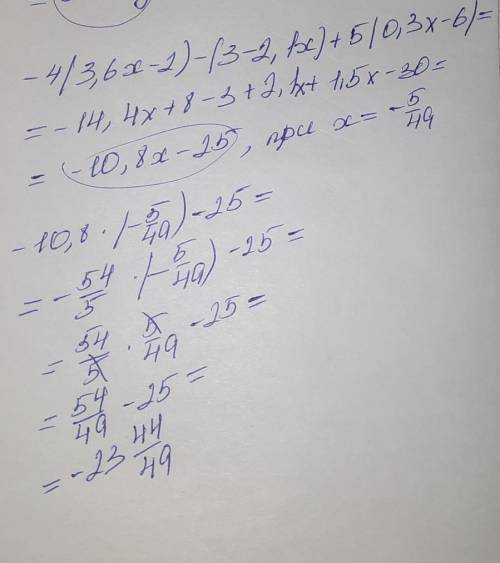 -4(3,6x-2)-(3-2,1x)+5(0,3x-6)=
= -14,4x+8-3+2,1x+1,5x-30=
= -10,8x-25, при x=-5/49
-10,8·(-5/49)-25=
= -54/5·(-5/49)-25=
= 54/5·5/49-25=
= 54/49-25=
= -23 44/49